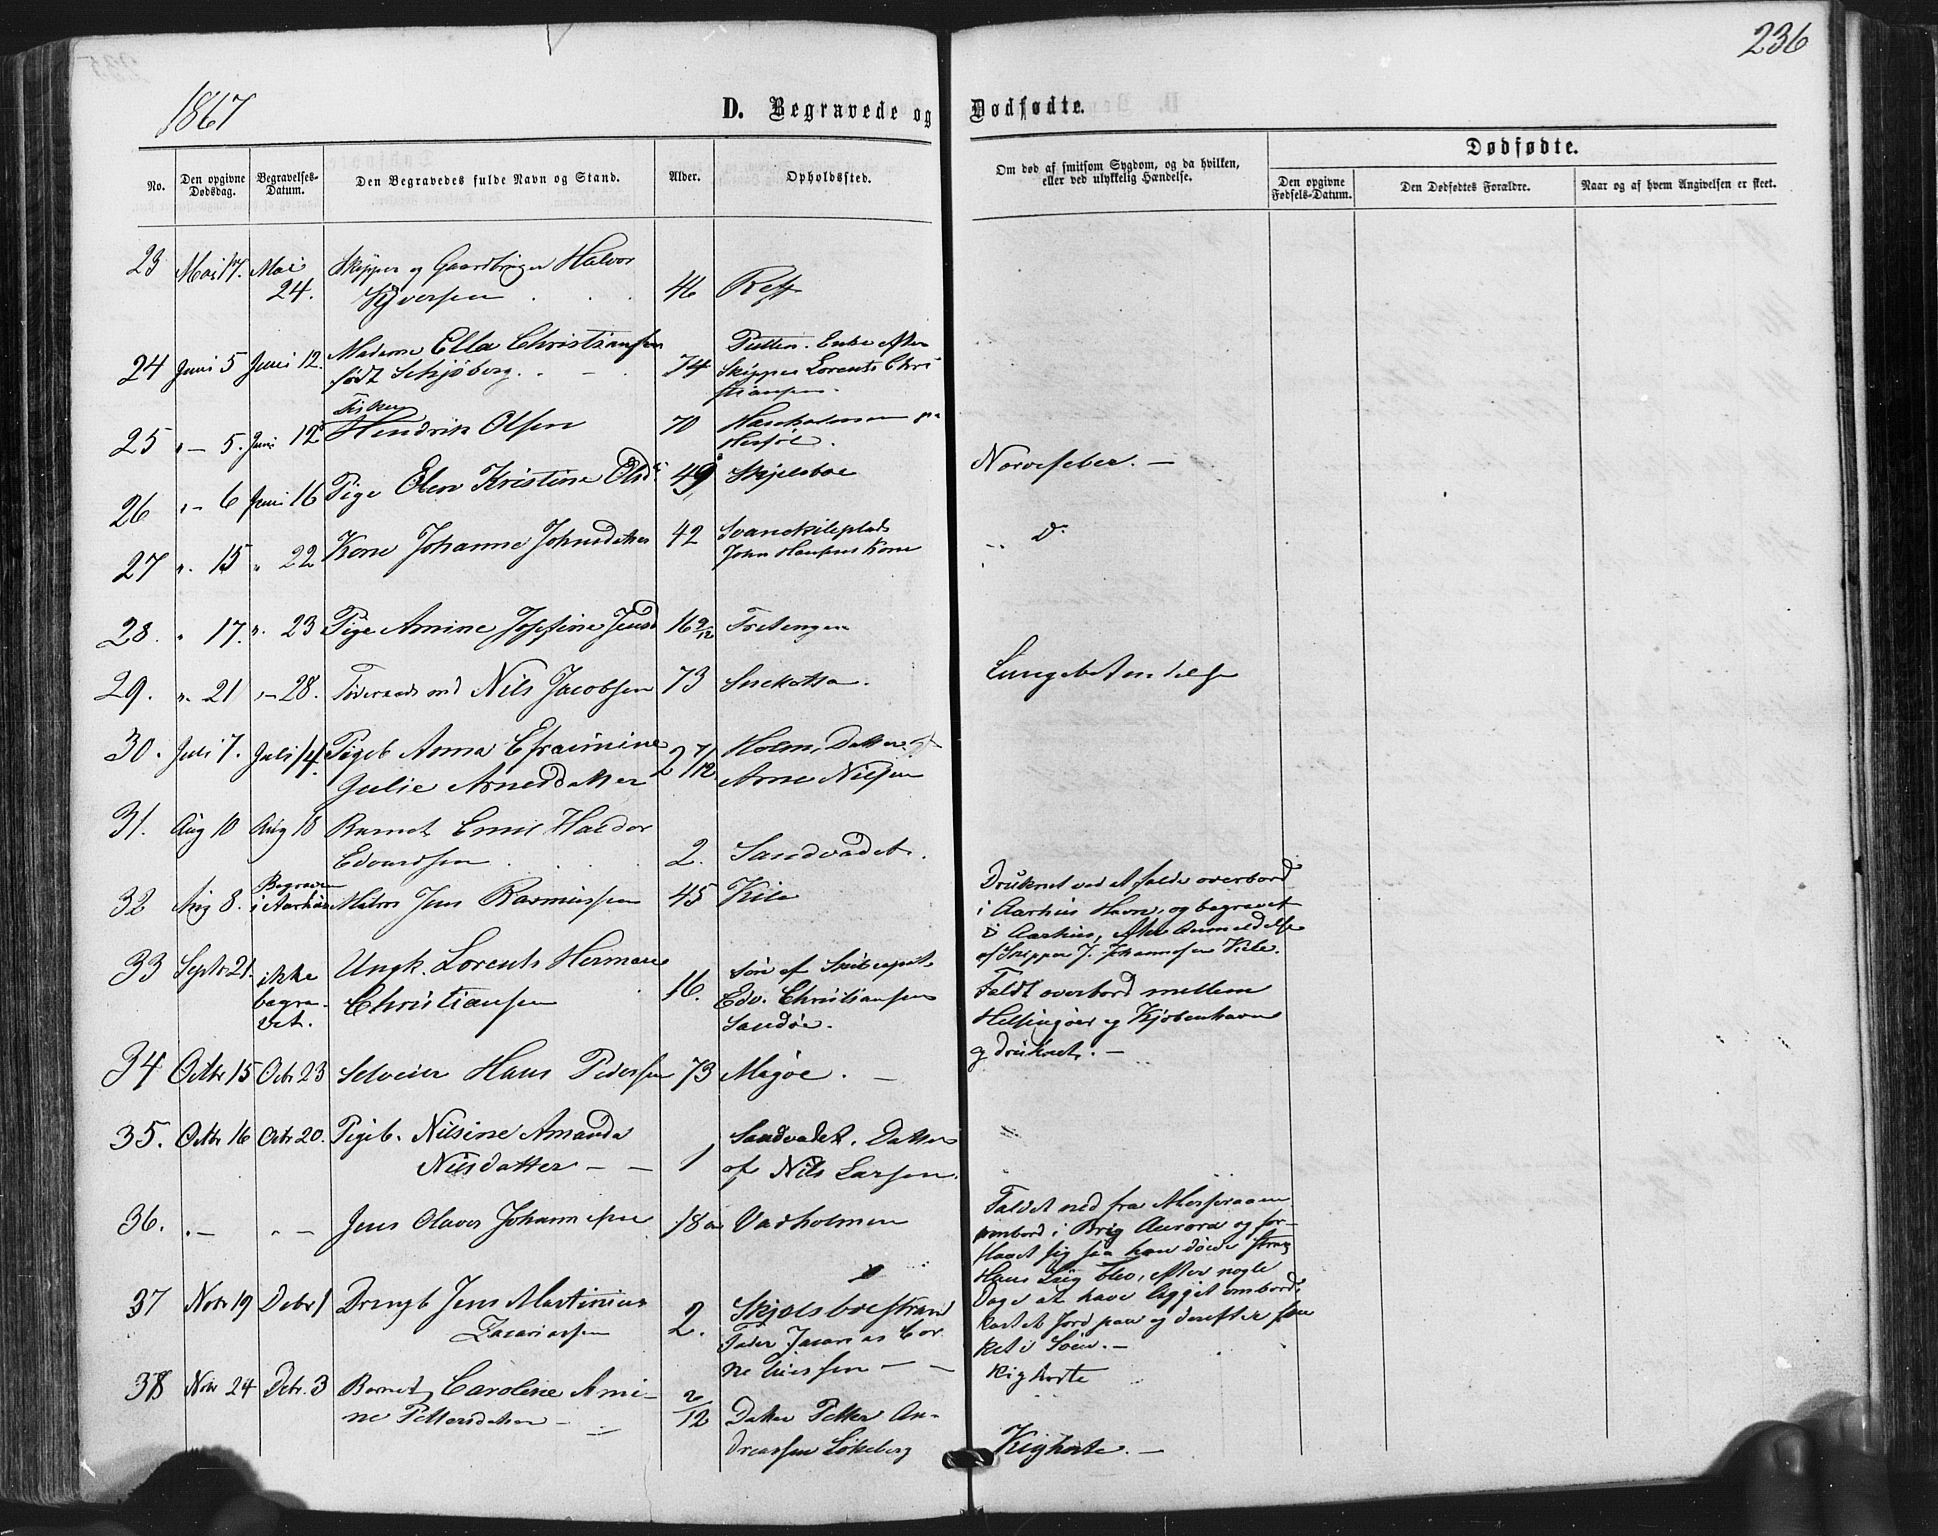 236
1867
D. Begravede og Dødfødte.
No.
Den opgivne Dødsdag.
Begravelses-Datum.
Den Begravedes fulde Navn og Stand.
Alder.
Opholdssted.
Om død af smitsom Sygdom, og da hvilken,
eller ved ulykkelig Hændelse.
Dødfødte.
Den opgivne Fødsels-Datum.
Den Dødfødtes Forældre.
Naar og af hvem Angivelsen er skeet.
23 Mai 17. Mai 24. Skipper og Gaardbruger Halvor
Syversen 46 Reff
24 Juni 5 Juni 12. Madame Ella Christiansen 74 Putten. Enke efter
født Schjøberg. Skipper Lorents Chri
stiansen.
25 " - 5. Juni 12 Fisker
Hendrik Olsen 70 Haseholmen pr
Herføl.
26 " - 6 Juni 16 Pige Elen Kristine Olsd 49 Skjelsboe Nervefeber. -
27 " 15 " 22 Kone Johanne Johnsdatter 42 Svanekileplads
John Hansens Kone " Do
28. " 17. " 23 Pige Amine Josefine Jensd 16 9/12 Tretengen
29. " 21 " - 28. Føderaadsmd Nils Jacobsen 73 Snekotta. Lungebetændelse
30. Juli 7. Juli 14. Pigeb Anna Efraimine 2 7/12. Holm, Datter af
Julie Arnesdatter Arne Nilsen
31. Aug 10 Aug 18 Barnet Emil Haldor
Edvardsen 2. Sandvadet.
32 Aug 8. Begraven
i Aarhus Matros Jens Rasmussen 45 Kile
Druknet ved at falde overbord
i Aarhus Havn, og begravet
i Aarhus, efter Anmeldelse
af Skipper J. Johannesen Kile.
33 Septr 21. ikke
begra-
vet. Ungk. Lorents Herman
Christiansen 16. Søn af Skibscapt.
Edv. Christiansen
Sandøe.
Faldt overbord mellem
Helsingøer og Kjøbenhavn
og druknet. -
34 Octbr 15 Octbr 23 Selveier Hans Pedersen 73 Magøe. -
35. Octbr 16 Octbr 20. Pigeb. Nilsine Amanda
Nilsdatter - - 1 Sandvadet. Datter
af Nils Larsen.
36. . - " - Jens Olaves Johannesen 18 a Vadholmen
Faldet ned fra Mersraaen
ombord i Brig Aurora og for-
slaaet sig saa han døde strax
Hans Liig blev, efter nogle
Dage at have ligget ombord,
kastet Jord paa og derefter sæn
ket i Søen. -
37 Novbr 19 Debr 1 Drengb Jens Martinius
Zacariassen 2. Skjelsboestran
Fader Zacarias Cor
neliussen - - Kighoste
38 Nov 24 Debr. 3 Barnet Caroline Ami-
ne Pettersdatter - 2/12 Datter Petter An-
dreassen Løkeberg Kighoste. -